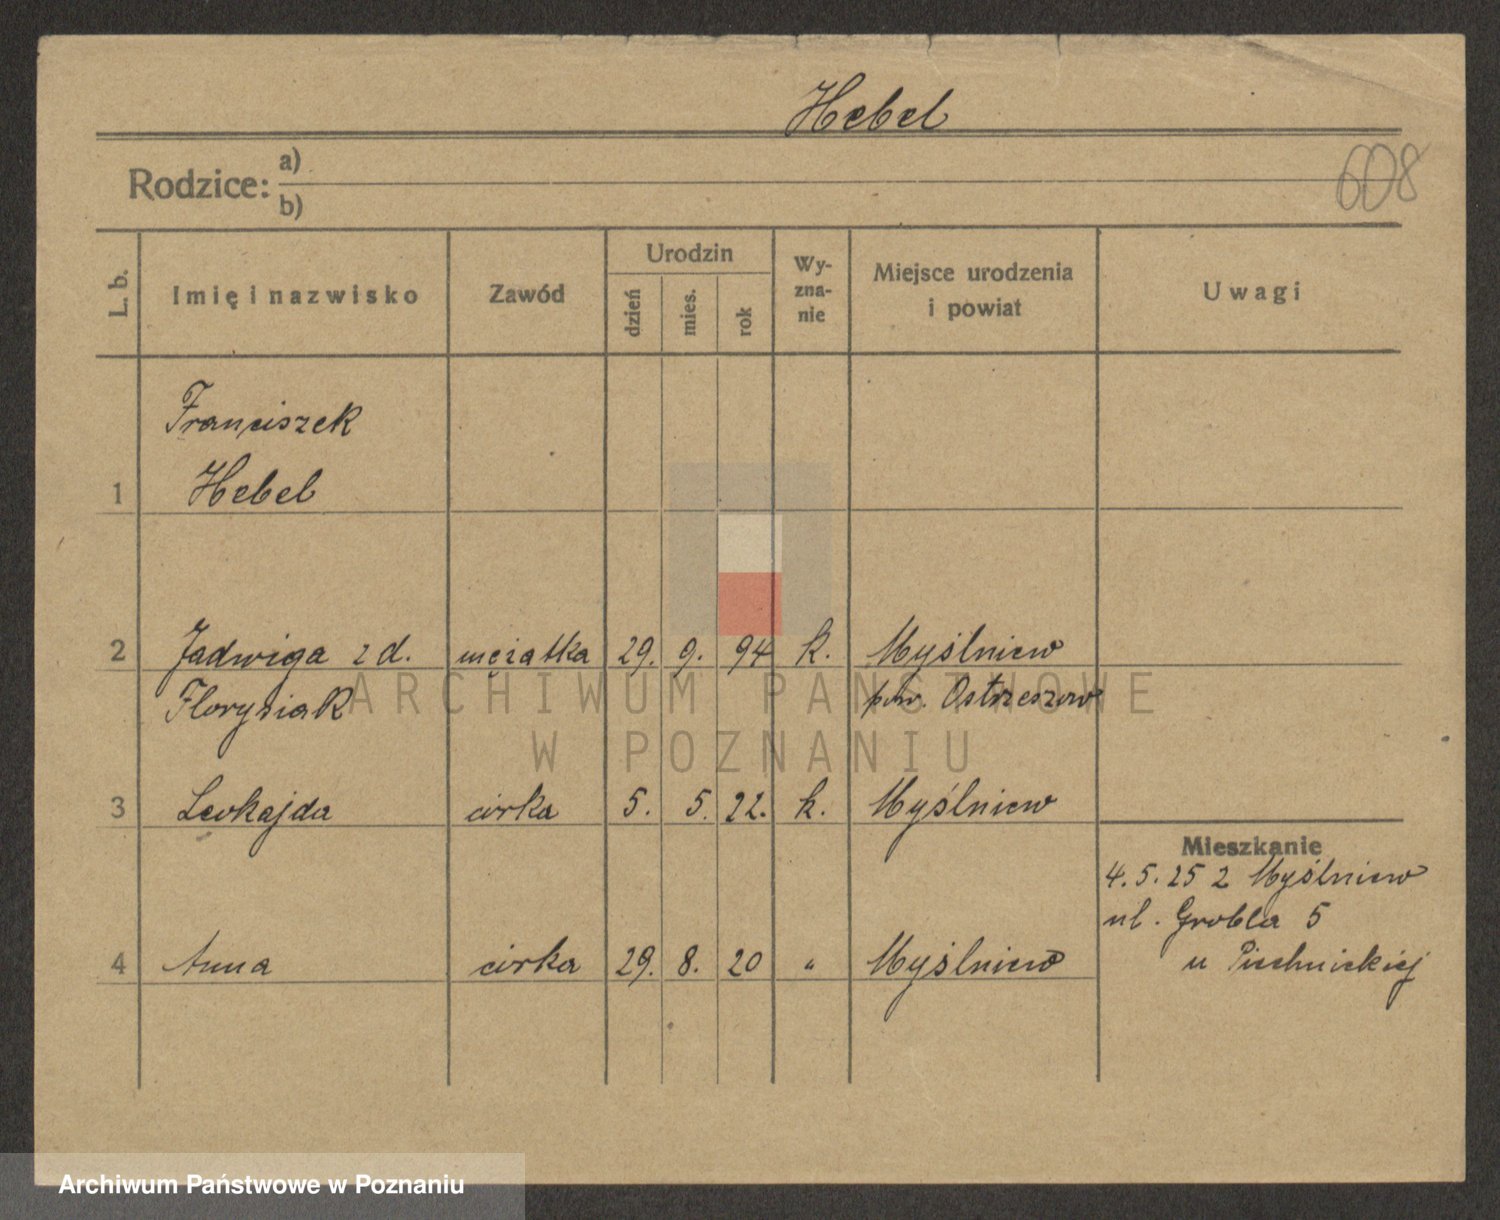 Hebel
608
Rodzice: a)
b)
L. b.
Imię i nazwisko
Zawód
Urodzin
dzień
mies.
rok
Wy-
zna-
nie
Miejsce urodzenia
i powiat
Uwagi
Franciszek
1 Hebel
2 Jadwiga z d. mężatka 29. 9. 94 k. Myślniew
Florysiak pow. Ostrzeszow
3 Leokajda córka 5. 5. 22. k. Myślniew
Mieszkanie
4. 5. 25 z Myślniew
ul. Grobla 5
4 Anna córka 29. 8. 20 " Myślniew
u Piechnickiej
ARCHIWUM PAŃSTWOWE
W POZNANIU
Archiwum Państwowe w Poznaniu